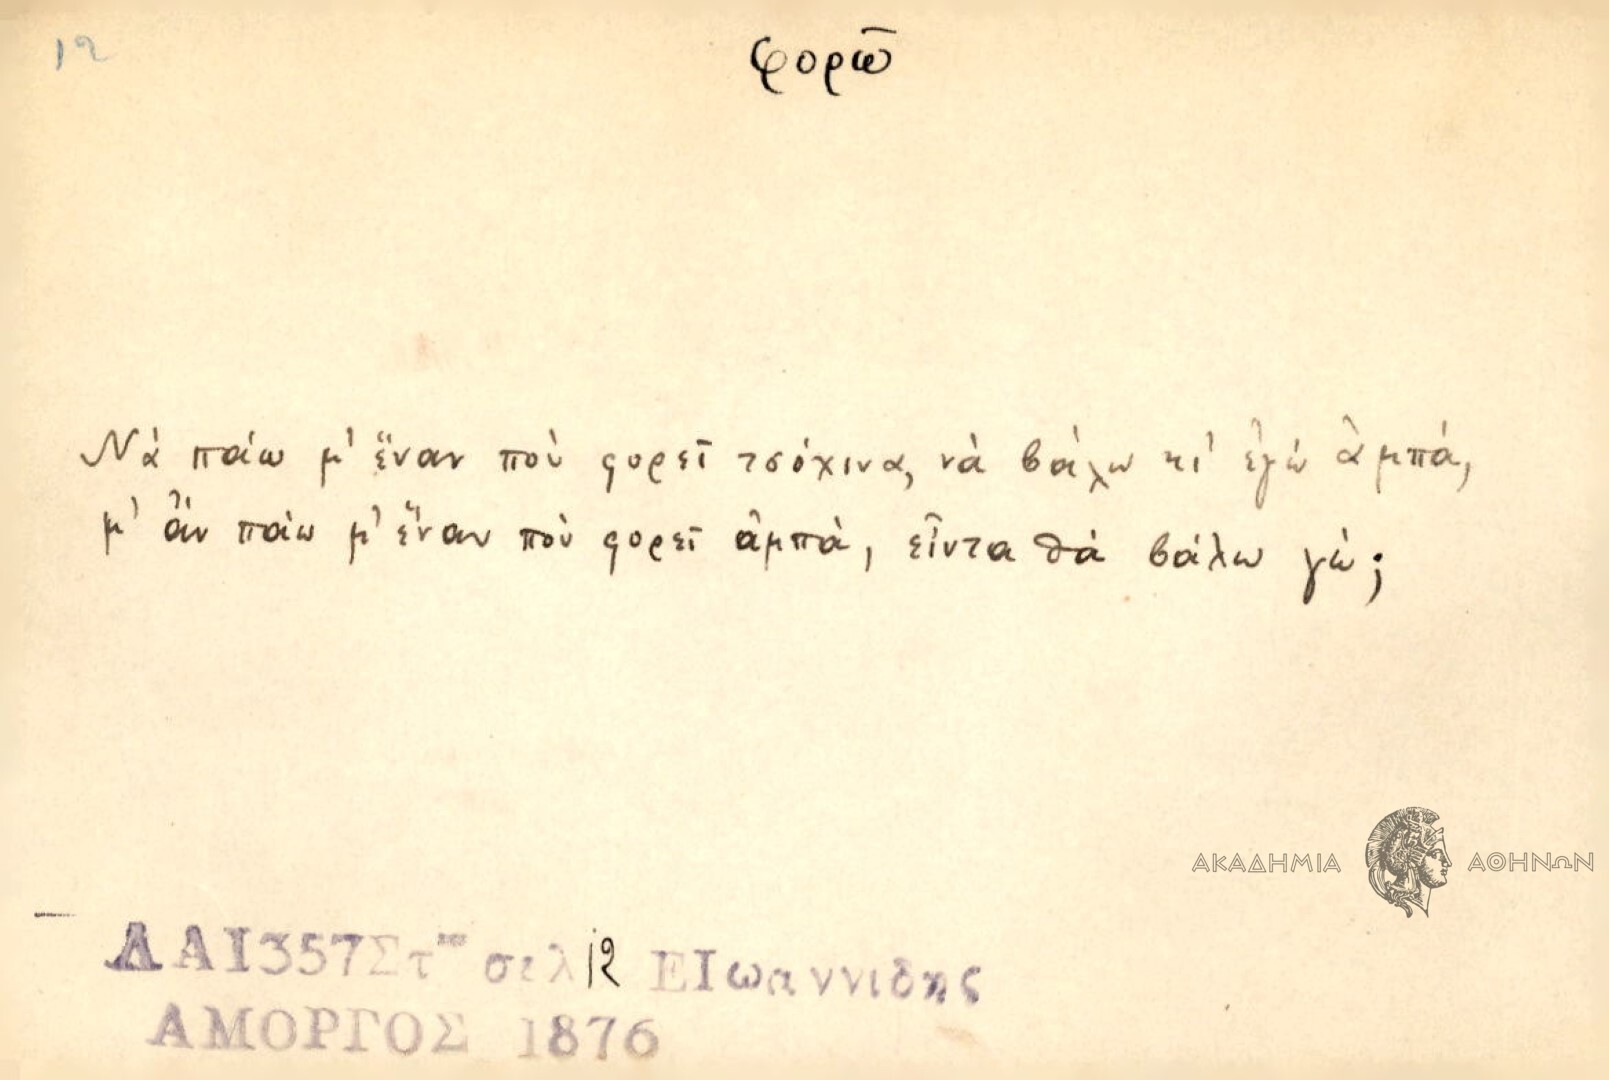 12
φορῶ
Νὰ πάω μ' ἕναν ποὺ φορεῖ τσόχινα, νὰ βάλω κι' ἐγὼ ἀμπά,
μ' ἂν πάω μ' ἕναν ποὺ φορεῖ ἀμπά, εἶντα θὰ βάλω γώ;
ΑΚΑΔΗΜΙΑ ΑΘΗΝΩΝ
ΛΑΙ357Στ σελ 12 ΕΙωαννιδης
ΑΜΟΡΓΟΣ 1876